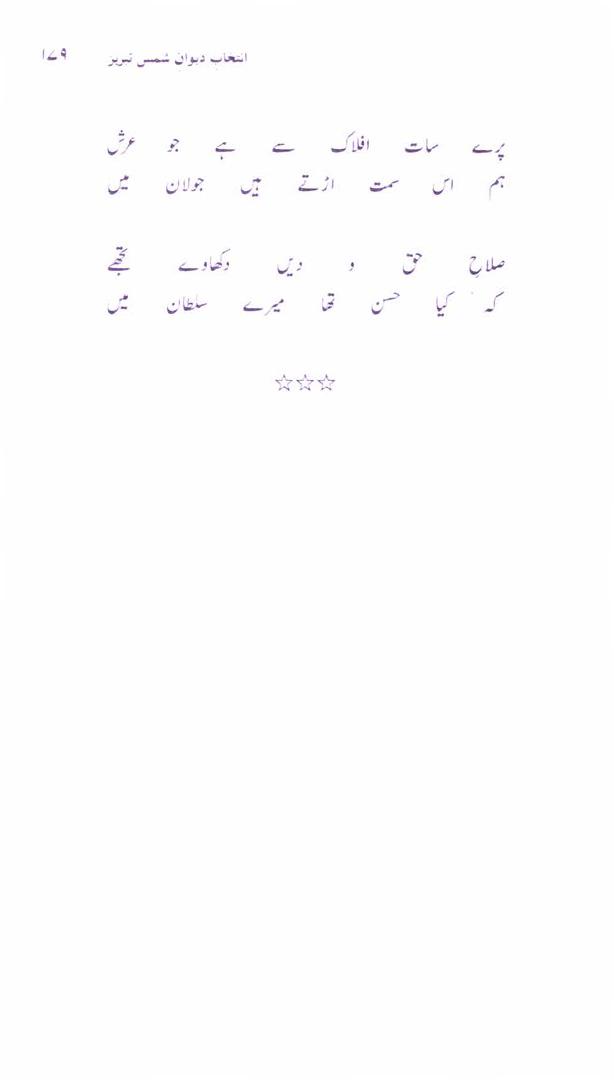 انتخاب دیوانِ شمس تبریز ۱۷۹
پرے سات افلاک سے ہے جو عرش
ہم اس سمت اڑتے ہیں جولان میں
صلاحِ حق و دیں دکھاوے تجھے
کہ کیا حسن تھا میرے سلطان میں
☆☆☆